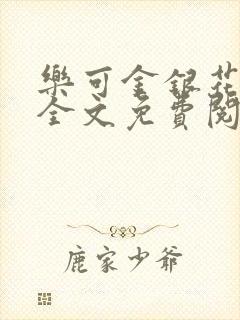 樂可金銀花
全文免費閱
鹿家少爺